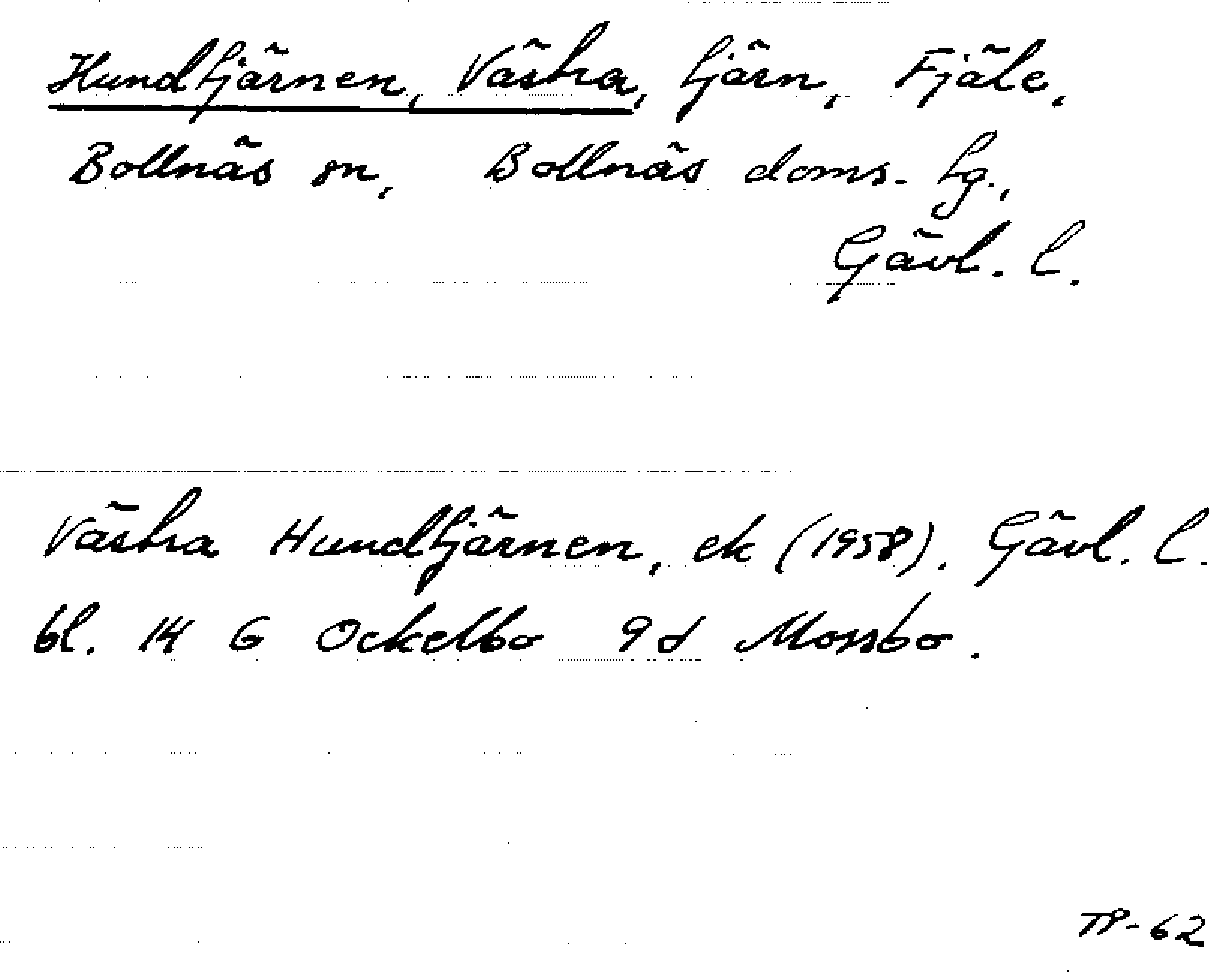 Hundtjärnen, Västra, tjärn, Fjäle,
Bollnäs sn, Bollnäs doms. tg.,
Gävl. l.
Västra Hundtjärnen, ek (1958). Gävl. l.
bl. 14 G Ockelbo 9d Mossbo.
TP-62